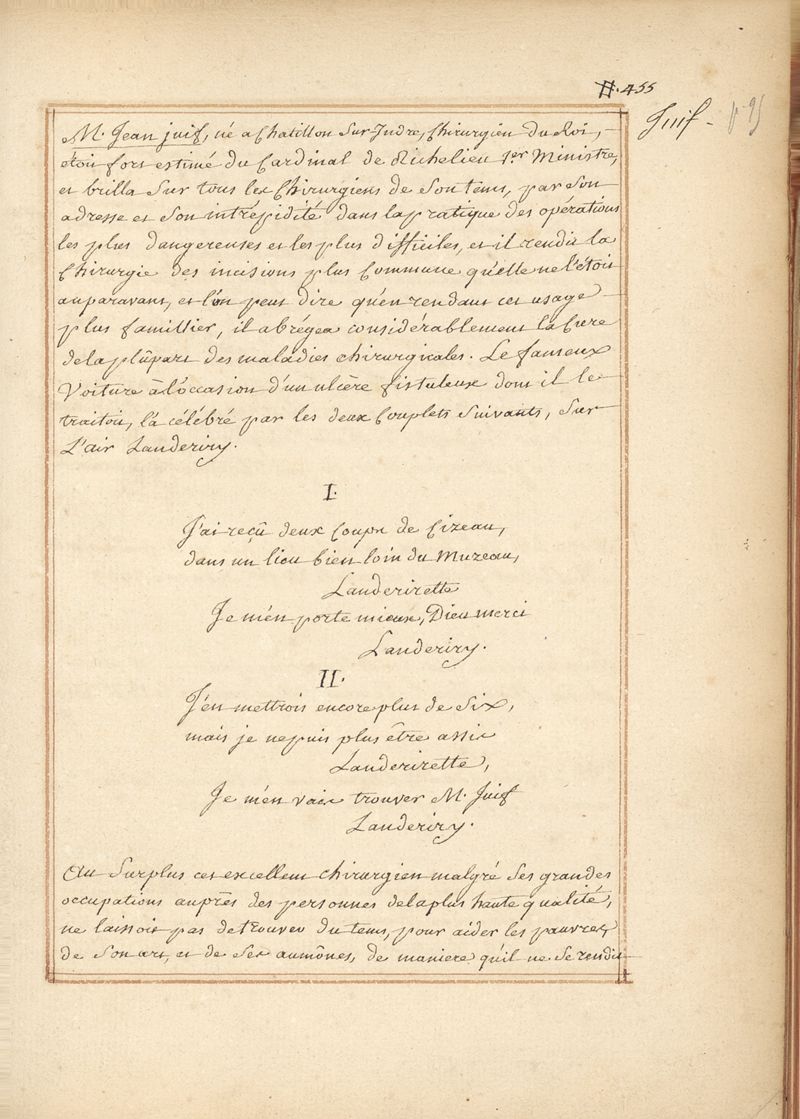 #. 455
Juif -
M. Jean juif, né a Chatillon Sur Jndre, Chirurgien du Roi,
étoit fort estimé du Cardinal de Richelieu 1.er Ministre,
et brilla Sur tous les Chirurgiens de Son tems, par Son
adresse et Son intrépidité dans la pratique des opérations
les plus dangereuses et les plus difficiles, et il rendit la
Chirurgie des incisions plus Commune qu'elle ne l'étoit
auparavant, et l'on peut dire qu'en rendant cet usage
plus famillier, il abrégea considérablement la Cure
de la plûpart des maladies chirurgicales. Le fameux
Voiture à l'occasion d'un ulcère fistuleux dont il le
traitoit, l'a célébré par les deux Couplets Suivants, Sur
L'air Landeriry.
I.
J'ai reçû deux Coups de Cizeau,
dans un lieu bien loin du Muzeau,
Landerirette
Je m'en porte mieux, Dieu merci
Landeriry.
II.
J'en mettrois encore plus de Six,
mais je ne puis plus être assis
Landerirette,
Je m'en vais trouver M. Juif
Landeriry.
Au Surplus cet excellent chirurgien malgré Ses grandes
occupations auprès des personnes de la plus haute qualité,
ne laissoit pas de trouver du tems, pour aider les pauvres,
de Son art, et de Ses aumônes, de maniere qu'il ne Se rendit